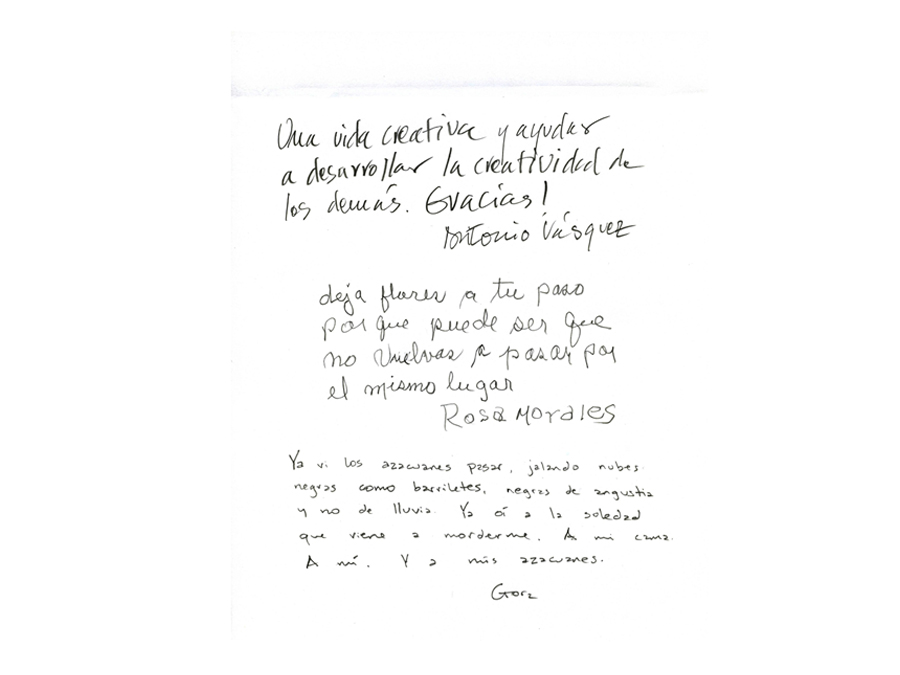 Una vida creativa y ayudar
a desarrollar la creatividad de
los demás. Gracias!
Antonio Vásquez
deja flores a tu paso
por que puede ser que
no vuelvas a pasar por
el mismo lugar
Rosa Morales
Ya vi los azacuanes pasar, jalando nubes
negras como barriletes, negras de angustia
y no de lluvia. Ya oí a la soledad
que viene a morderme. A mi cama.
A mí. Y a mis azacuanes.